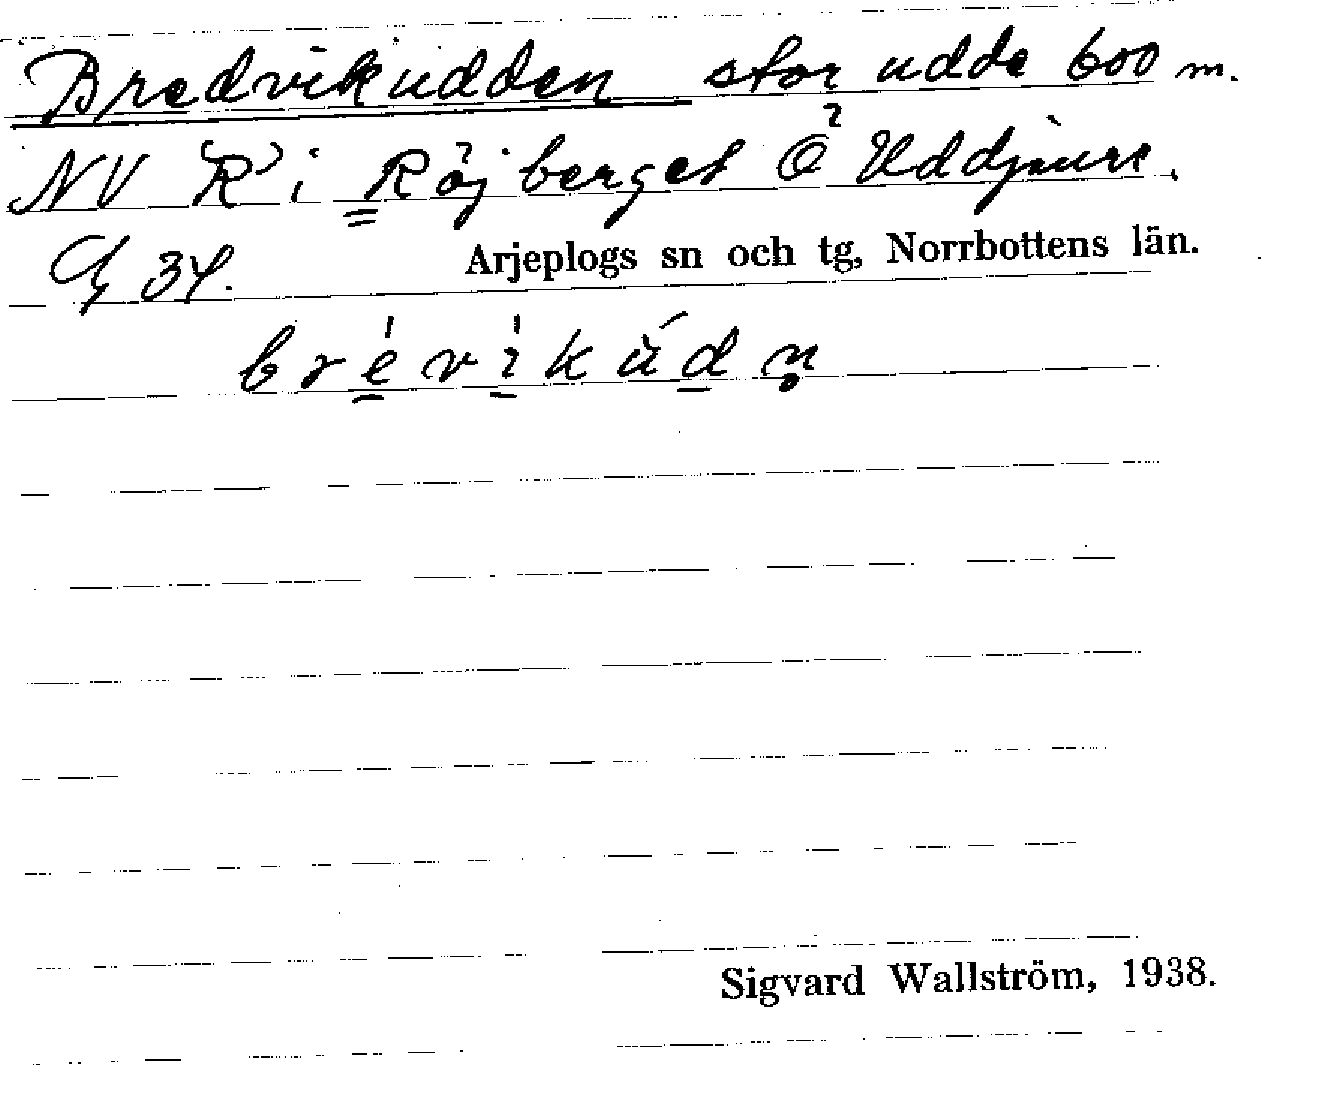 Bredvikudden stor udde 600 m.
NV "R" i Röjberget Ö Uddjaure.
G 34.
Arjeplogs sn och tg, Norrbottens län.
brévikùdn̥
Sigvard Wallström, 1938.